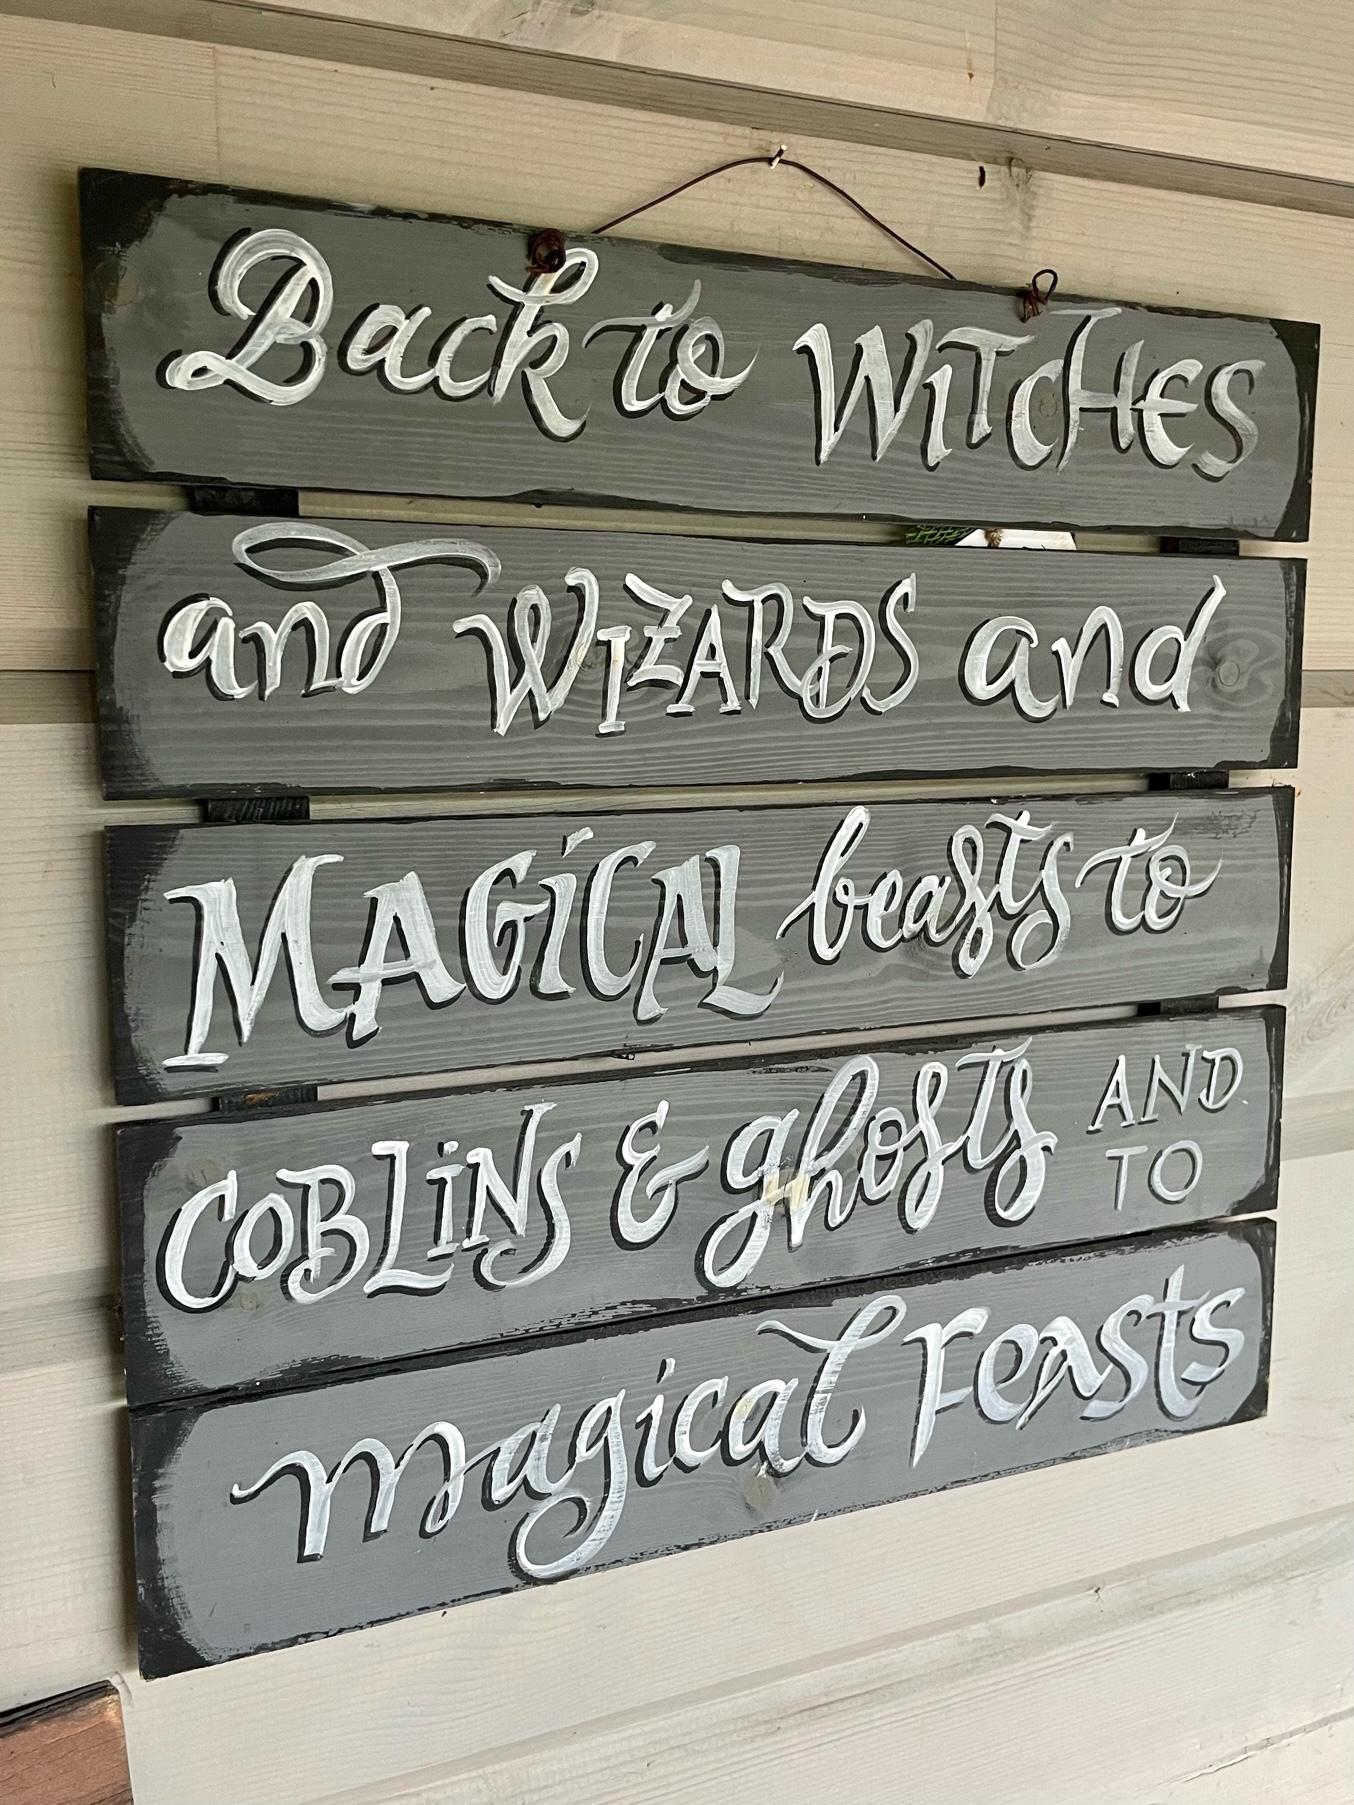 Back to WiTCHES
and WIZARDS and
MAGiCAL beasts to
COBLiNS & ghosts AND
TO
magical Feasts